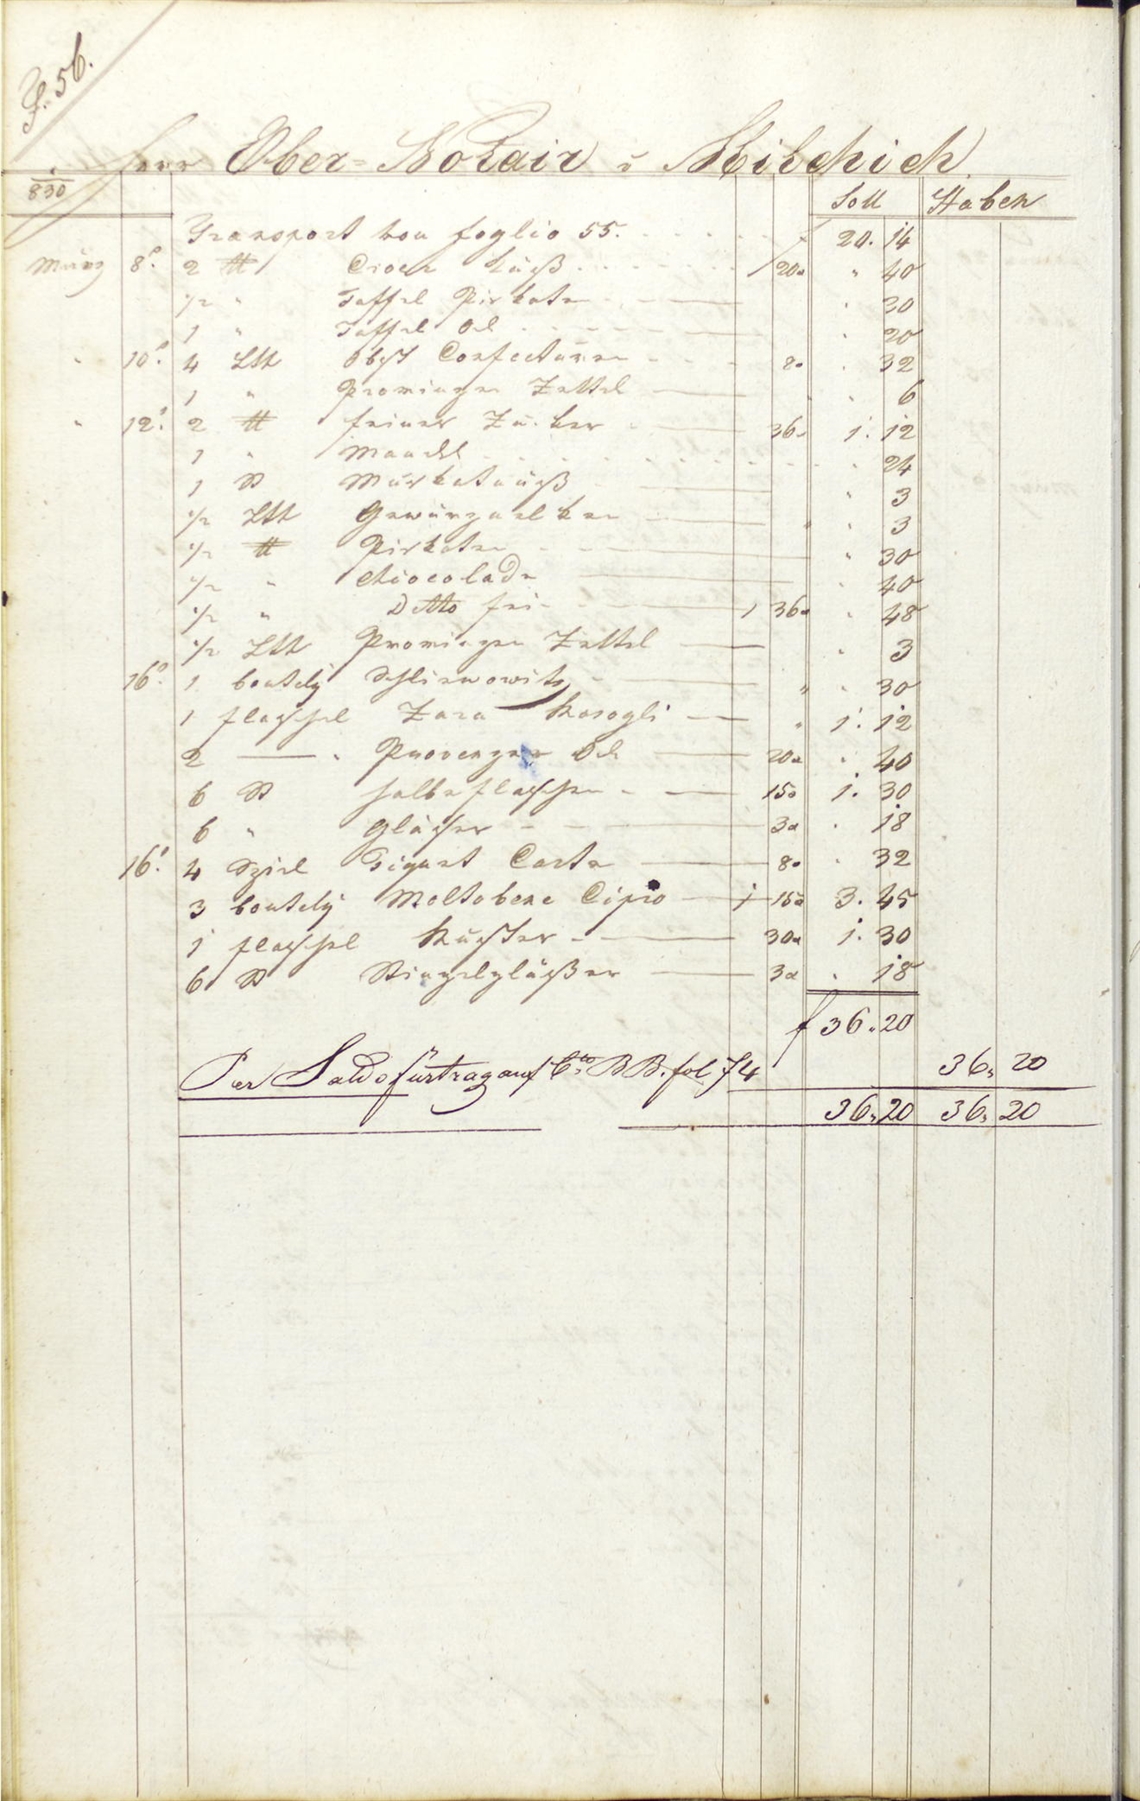 F. 56.
Herr Ober-Notair v Milchich.
1830
Soll Haben
Transport von foglio 55. f 20. 14
März 8. 2 ℔ 20 " 40
1/2 " Taffel 30
1 " Taffel Oel 20
" 10. 4 Lth Obst Confecturen 8 32
1 " Prominzen Zettel 6
" 12. 2 ℔ feiner Zucker 36 1. 12
1 " Mandel 24
1 St Muskatnuß 3
1/2 Lth Gewürznelken 3
1/2 ℔ 30
1/2 " Chiocolade 40
1/2 " Detto fein 1 36 48
1/2 Lth Prominzen Zettel 3
16. 1 bouteli Schliwowitz 30
1 flaschel Zara Rosogli 1. 12
2 — " Provenzer Oel 20 40
6 St halbe flaschen 15 1. 30
6 " Gläser 3 18
16. 4 Spiel Carte 8 32
3 bouteli Cipro 1 15 3. 45
1 flaschel Ruster 30 1. 30
6 St Stingelgläßer 3 18
f 36. 20
Per Saldo fürtrag auf BB. fol 74 36, 20
36, 20 36, 20